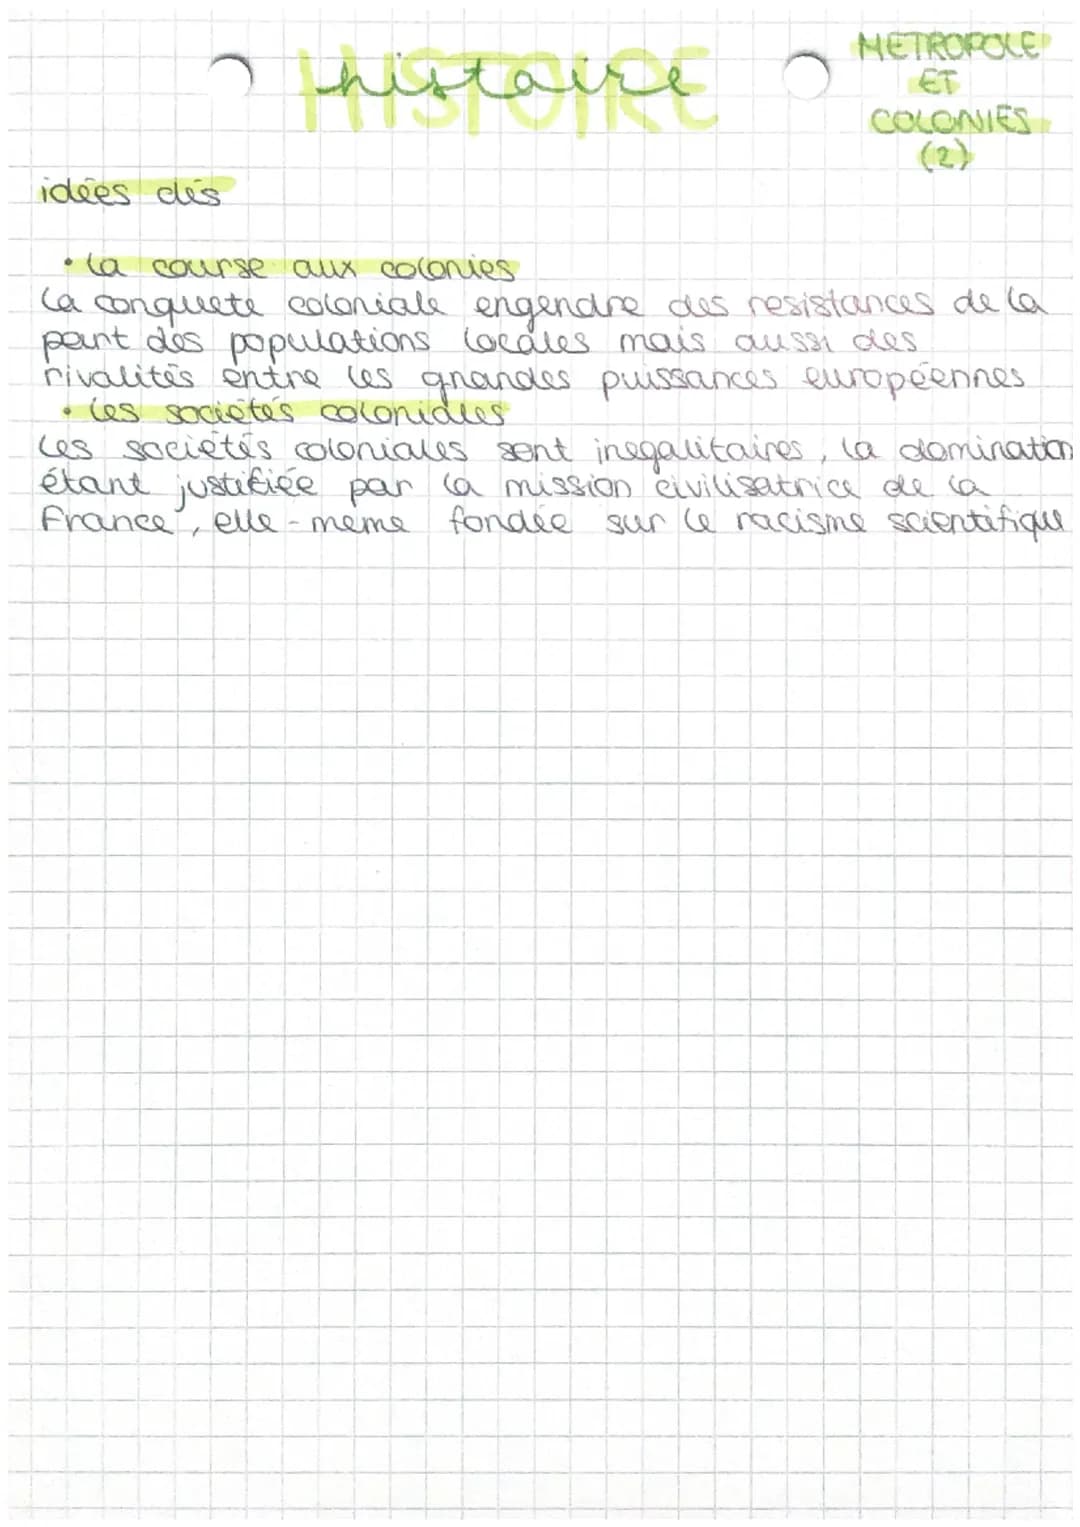 HISTOIRE
histoire
METROPOLE
ET
COLONIES
(2)
idées clés
• la course aux colonies
la conquete coloniale engendre des resistances de la
part des populations locales mais aussi des
rivalités entre les grandes puissances européennes
• les sociétés coloniales
les sociétés coloniales sont inegalitaires, la domination
étant justifiée par la mission civilisatrice de la
France, elle-meme fondée sur le racisme scientifique